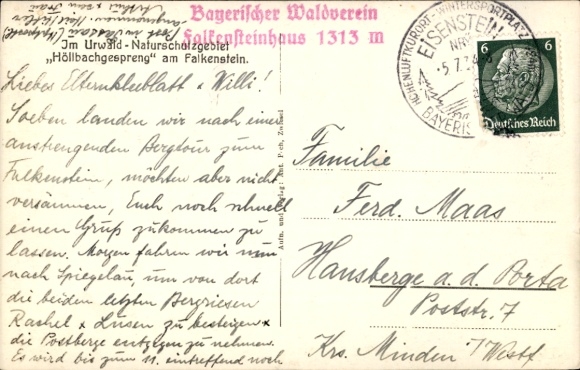 Bayerischer Waldverein
Falkensteinhaus 1313 m
Im Urwald-Naturschutzgebiet
„Höllbachgespreng" am Falkenstein.
Liebes Elternkleeblatt + Willi!
Soeben landen wir nach einer
anstrengenden Bergtour zum
Falkenstein, möchten aber nicht
versäumen, Euch noch schnell
einen Gruß zukommen zu
lassen. Morgen fahren wir nun
nach Spiegelau, um von dort
die beiden letzten Bergriesen
Rachel + Lusen zu besteigen +
die Postberge entgegen zu nehmen.
Es wird bis zum 11. eintreffend noch
HÖHENLUFTKURORT-WINTERSPORTPLATZ
EISENSTEIN
-5.7.
BAYERISCH
6 6
Deutsches Reich
Familie
Ferd. Maas
Hausberge a. d. Porta
Poststr. 7
Krs. Minden i/Westf